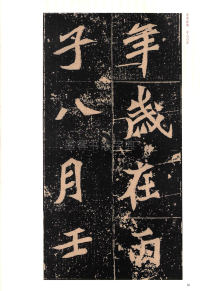 年歲在丙
子八月壬